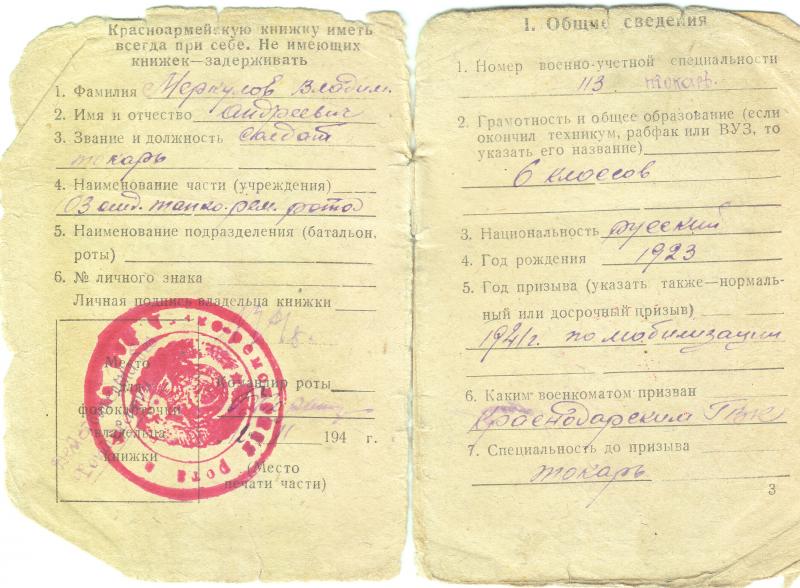 Красноармейскую книжку иметь
всегда при себе. Не имеющих
книжек—задерживать
1. Фамилия Меркулов Владим.
2. Имя и отчество Андреевич
3. Звание и должность солдат
токарь
4. Наименование части (учреждения)
рем. рота
5. Наименование подразделения (батальон,
роты)
6. № личного знака
Личная подпись владельца книжки
Место
для
фотокарточки
владельца
книжки
Командир роты
194 г.
(Место
печати части)
рота
I. Общие сведения
1. Номер военно-учетной специальности
113 токарь
2. Грамотность и общее образование (если
окончил техникум, рабфак или ВУЗ, то
указать его название)
6 классов
3. Национальность русский
4. Год рождения 1923
5. Год призыва (указать также—нормаль-
ный или досрочный призыв)
1941г. по мобилизации
6. Каким военкоматом призван
Краснодарским ГВК
7. Специальность до призыва
токарь
3